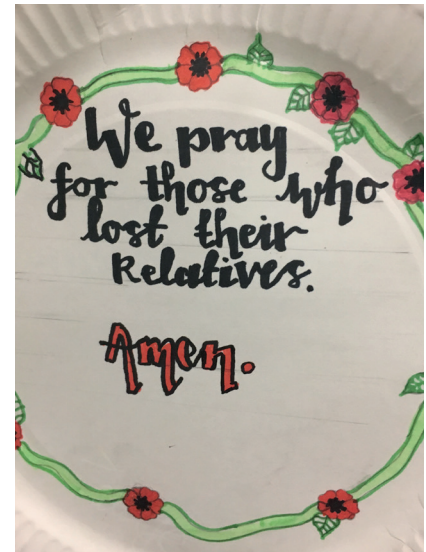 We pray
for those who
lost their
Relatives.
Amen.